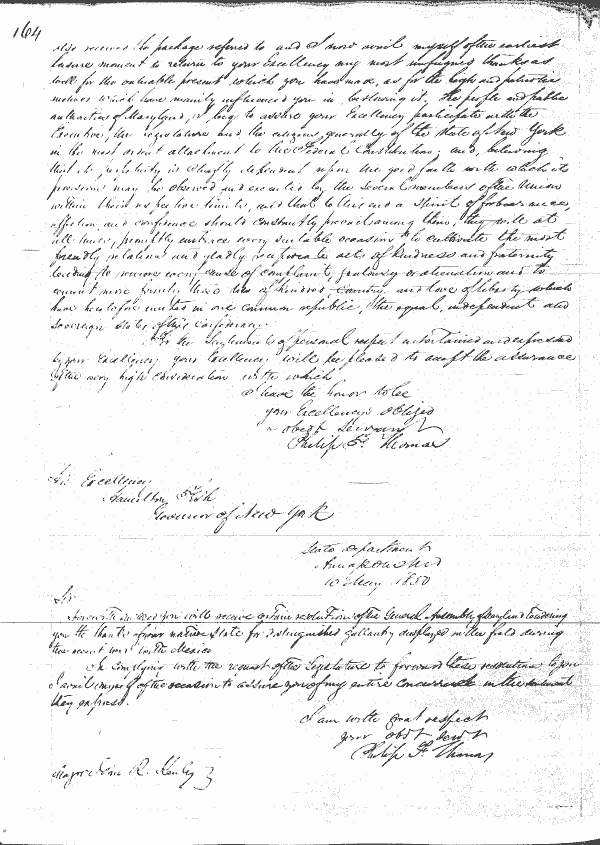 164
also received the package referred to and I now avail myself of the earliest
leisure moment to return to your Excellency my most unfeigned thanks as
well for the valuable present, which you have made, as for the high and patriotic
motives which have mainly influenced you in bestowing it. The people and public
authorities of Maryland, I beg to assure your Excellency participate with the
Executive, the Legislature and the citizens generally of the State of New York
in the most ardent attachment to the Federal Constitution; and, believing
that its perpetuity is chiefly dependent upon the good faith with which its
provisions may be observed and executed by the several members of the Union
within their respective limits, and that to this end a spirit of forbearance,
affection and confidence should constantly prevail among them, they will at
all times, promptly embrace every suitable occasion to cultivate the most
friendly relations and gladly reciprocate acts of kindness and fraternity
tending to remove every cause of complaint, jealousy or alienation and to
cement more firmly those ties of kindred, country and love of liberty which
have heretofore united in one common republic, the equal, independent and
Sovereign States of this Confederacy.
For the Sentiments of personal respect entertained and expressed
by your Excellency your Excellency will be pleased to accept the assurance
of the very high consideration with which
I have the honor to be
your Excellency's obliged
obedt Servant
Philip F. Thomas
His Excellency
Hamilton Fish
Governor of New York
State Department
Annapolis Md
10 May 1850
Sir
Herewith inclosed you will receive certain resolutions of the General Assembly of Maryland tendering
you the thanks of your native State for distinguished gallantry displayed in the field during
the recent war with Mexico
In complying with the request of the Legislature to forward these resolutions to you
I avail myself of the occasion to assure you of my entire concurrence in the sentiment
they express.
I am with great respect
your obdt servt
Philip F. Thomas
Major John R. Kenly